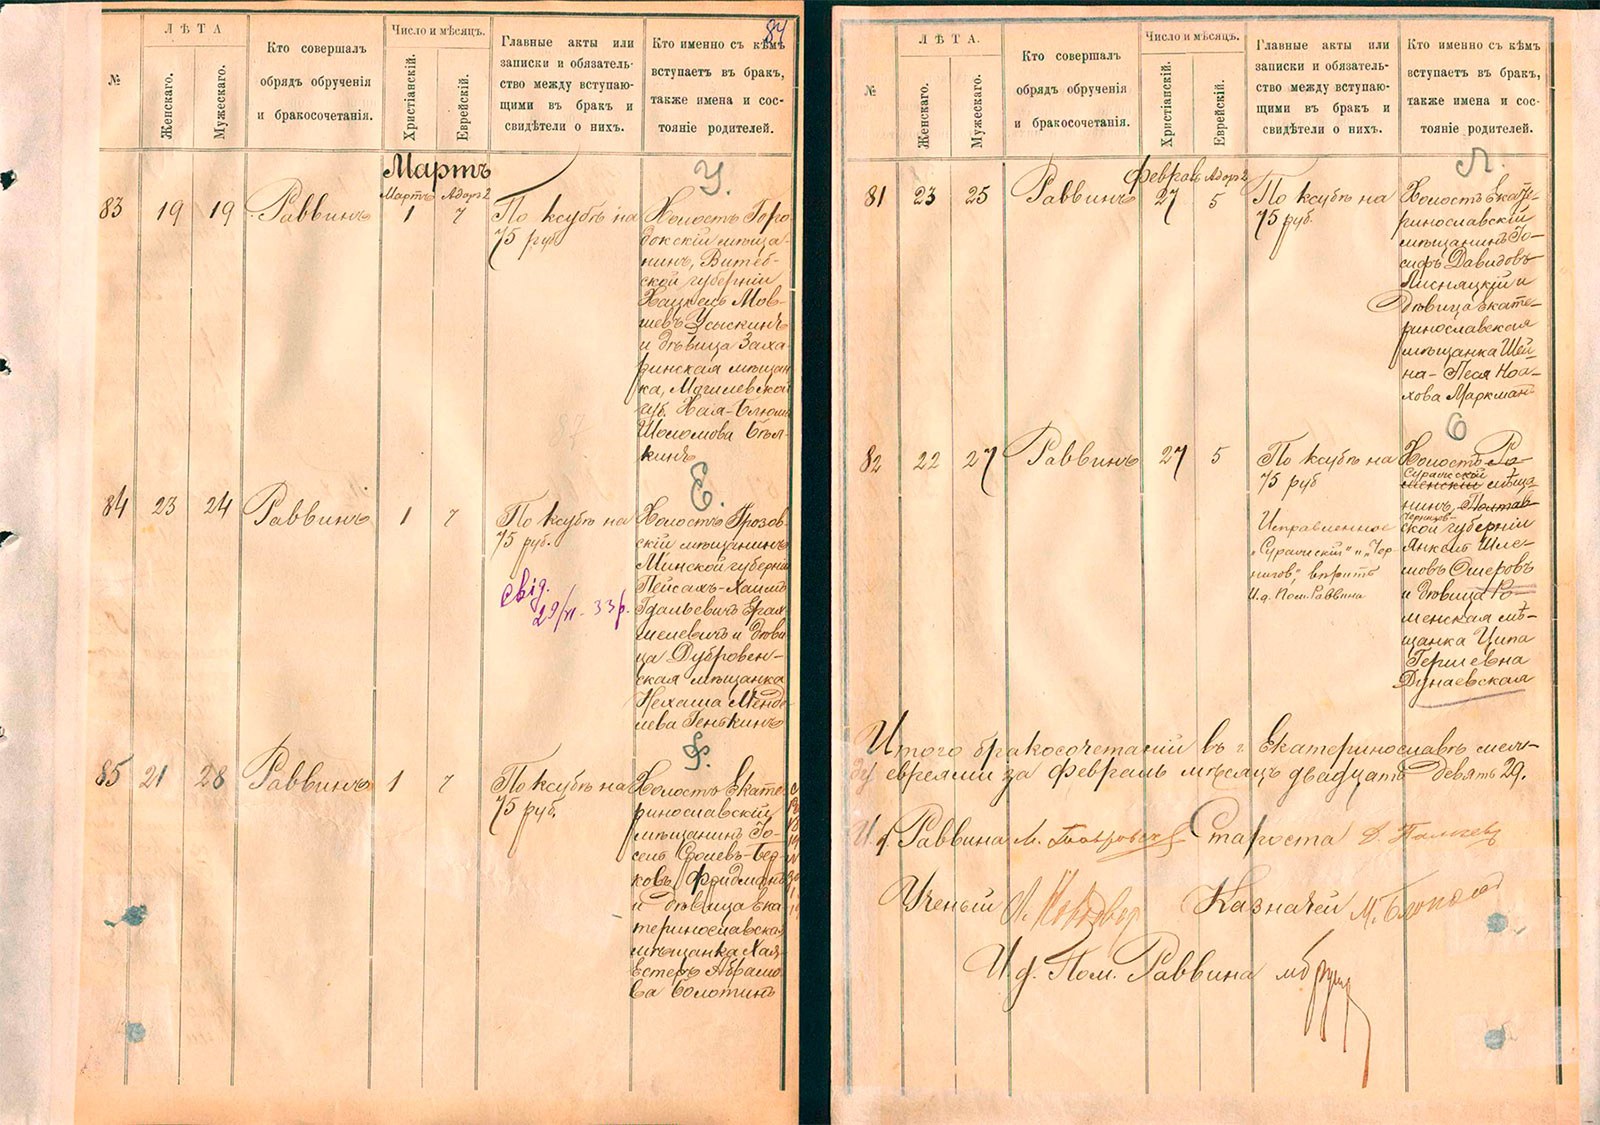 84
ЛѢТА
Число и мѣсяцъ.
№
Женскаго.
Мужескаго.
Кто совершалъ
обрядъ обрученія
и бракосочетанія.
Христіанскій.
Еврейскій.
Главные акты или
записки и обязатель-
ство между вступаю-
щими въ бракъ и
свидѣтели о нихъ.
Кто именно съ кѣмъ
вступаетъ въ бракъ,
также имена и сос-
тояніе родителей.
Мартъ
У.
83 19 19 Раввинъ
Мартъ Адоръ 2
1 7
По ксубѣ на
75 руб.
Холостъ Горо-
докскій мѣща-
нинъ, Витеб-
ской губерніи
Хацкель Мов-
шевъ Усыскинъ
и дѣвица Заха-
ринская мѣщан
ка, Могилевской
губ. Хая-Блюма
Шоломова Бѣл-
кинъ
Е.
84 23 24 Раввинъ 1 7
По ксубѣ на
75 руб.
свід.
29/XI - 33 р.
Холостъ Грозов-
скій мѣщанинъ
Минской губерніи
Пейсахъ-Хаимъ
Гдальевичъ Ерах
мелевичъ и дѣви
ца Дубровен-
ская мѣщанка
Нехама Менде
лева Генькинъ
Ф.
85 21 28 Раввинъ 1 7
По ксубѣ на
75 руб.
Холостъ Екате
ринославскій
мѣщанинъ Іо-
сель Сролевъ-Бер-
ковъ Фридманъ
и дѣвица Ека
теринославская
мѣщанка Хая
Естеръ Абрамо
ва Болотинъ
ЛѢТА.
Число и мѣсяцъ.
№
Женскаго.
Мужескаго.
Кто совершалъ
обрядъ обрученія
и бракосочетанія.
Христіанскій.
Еврейскій.
Главные акты или
записки и обязатель-
ство между вступаю-
щими въ бракъ и
свидѣтели о нихъ.
Кто именно съ кѣмъ
вступаетъ въ бракъ,
также имена и сос-
тояніе родителей.
Л.
81 23 25 Раввинъ
Февраль Адоръ 2
27 5
По ксубѣ на
75 руб.
Холостъ Екате-
ринославскій
мѣщанинъ Іо-
сифъ Давидовъ
Лисняцкій и
дѣвица екате-
ринославская
мѣщанка Шей-
на-Песя Ноа-
хова Маркманъ
О
82 22 27 Раввинъ 27 5
По ксубѣ на
75 руб
Исправленное
„Суражскій" и „Чер-
нигов", вѣрить
И.д. Пом. Раввина
Холостъ Ро
Суражскій
менскій мѣща
нинъ, Полтав
Чернигов-
ской губерніи
Янкель Шле-
мовъ Ошеровъ
и дѣвица Ро
менская мѣ-
щанка Ципа
Гершевна
Дунаевская
Итого бракосочетаній въ г. Екатеринославѣ меж-
ду евреями за февраль мѣсяцъ двадцать девять 29.
И. д. Раввина
Староста
Ученый
Казначей
И. д. Пом. Раввина